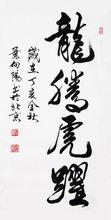 龍騰虎躍
歲在丁亥金秋
向陽書於北京